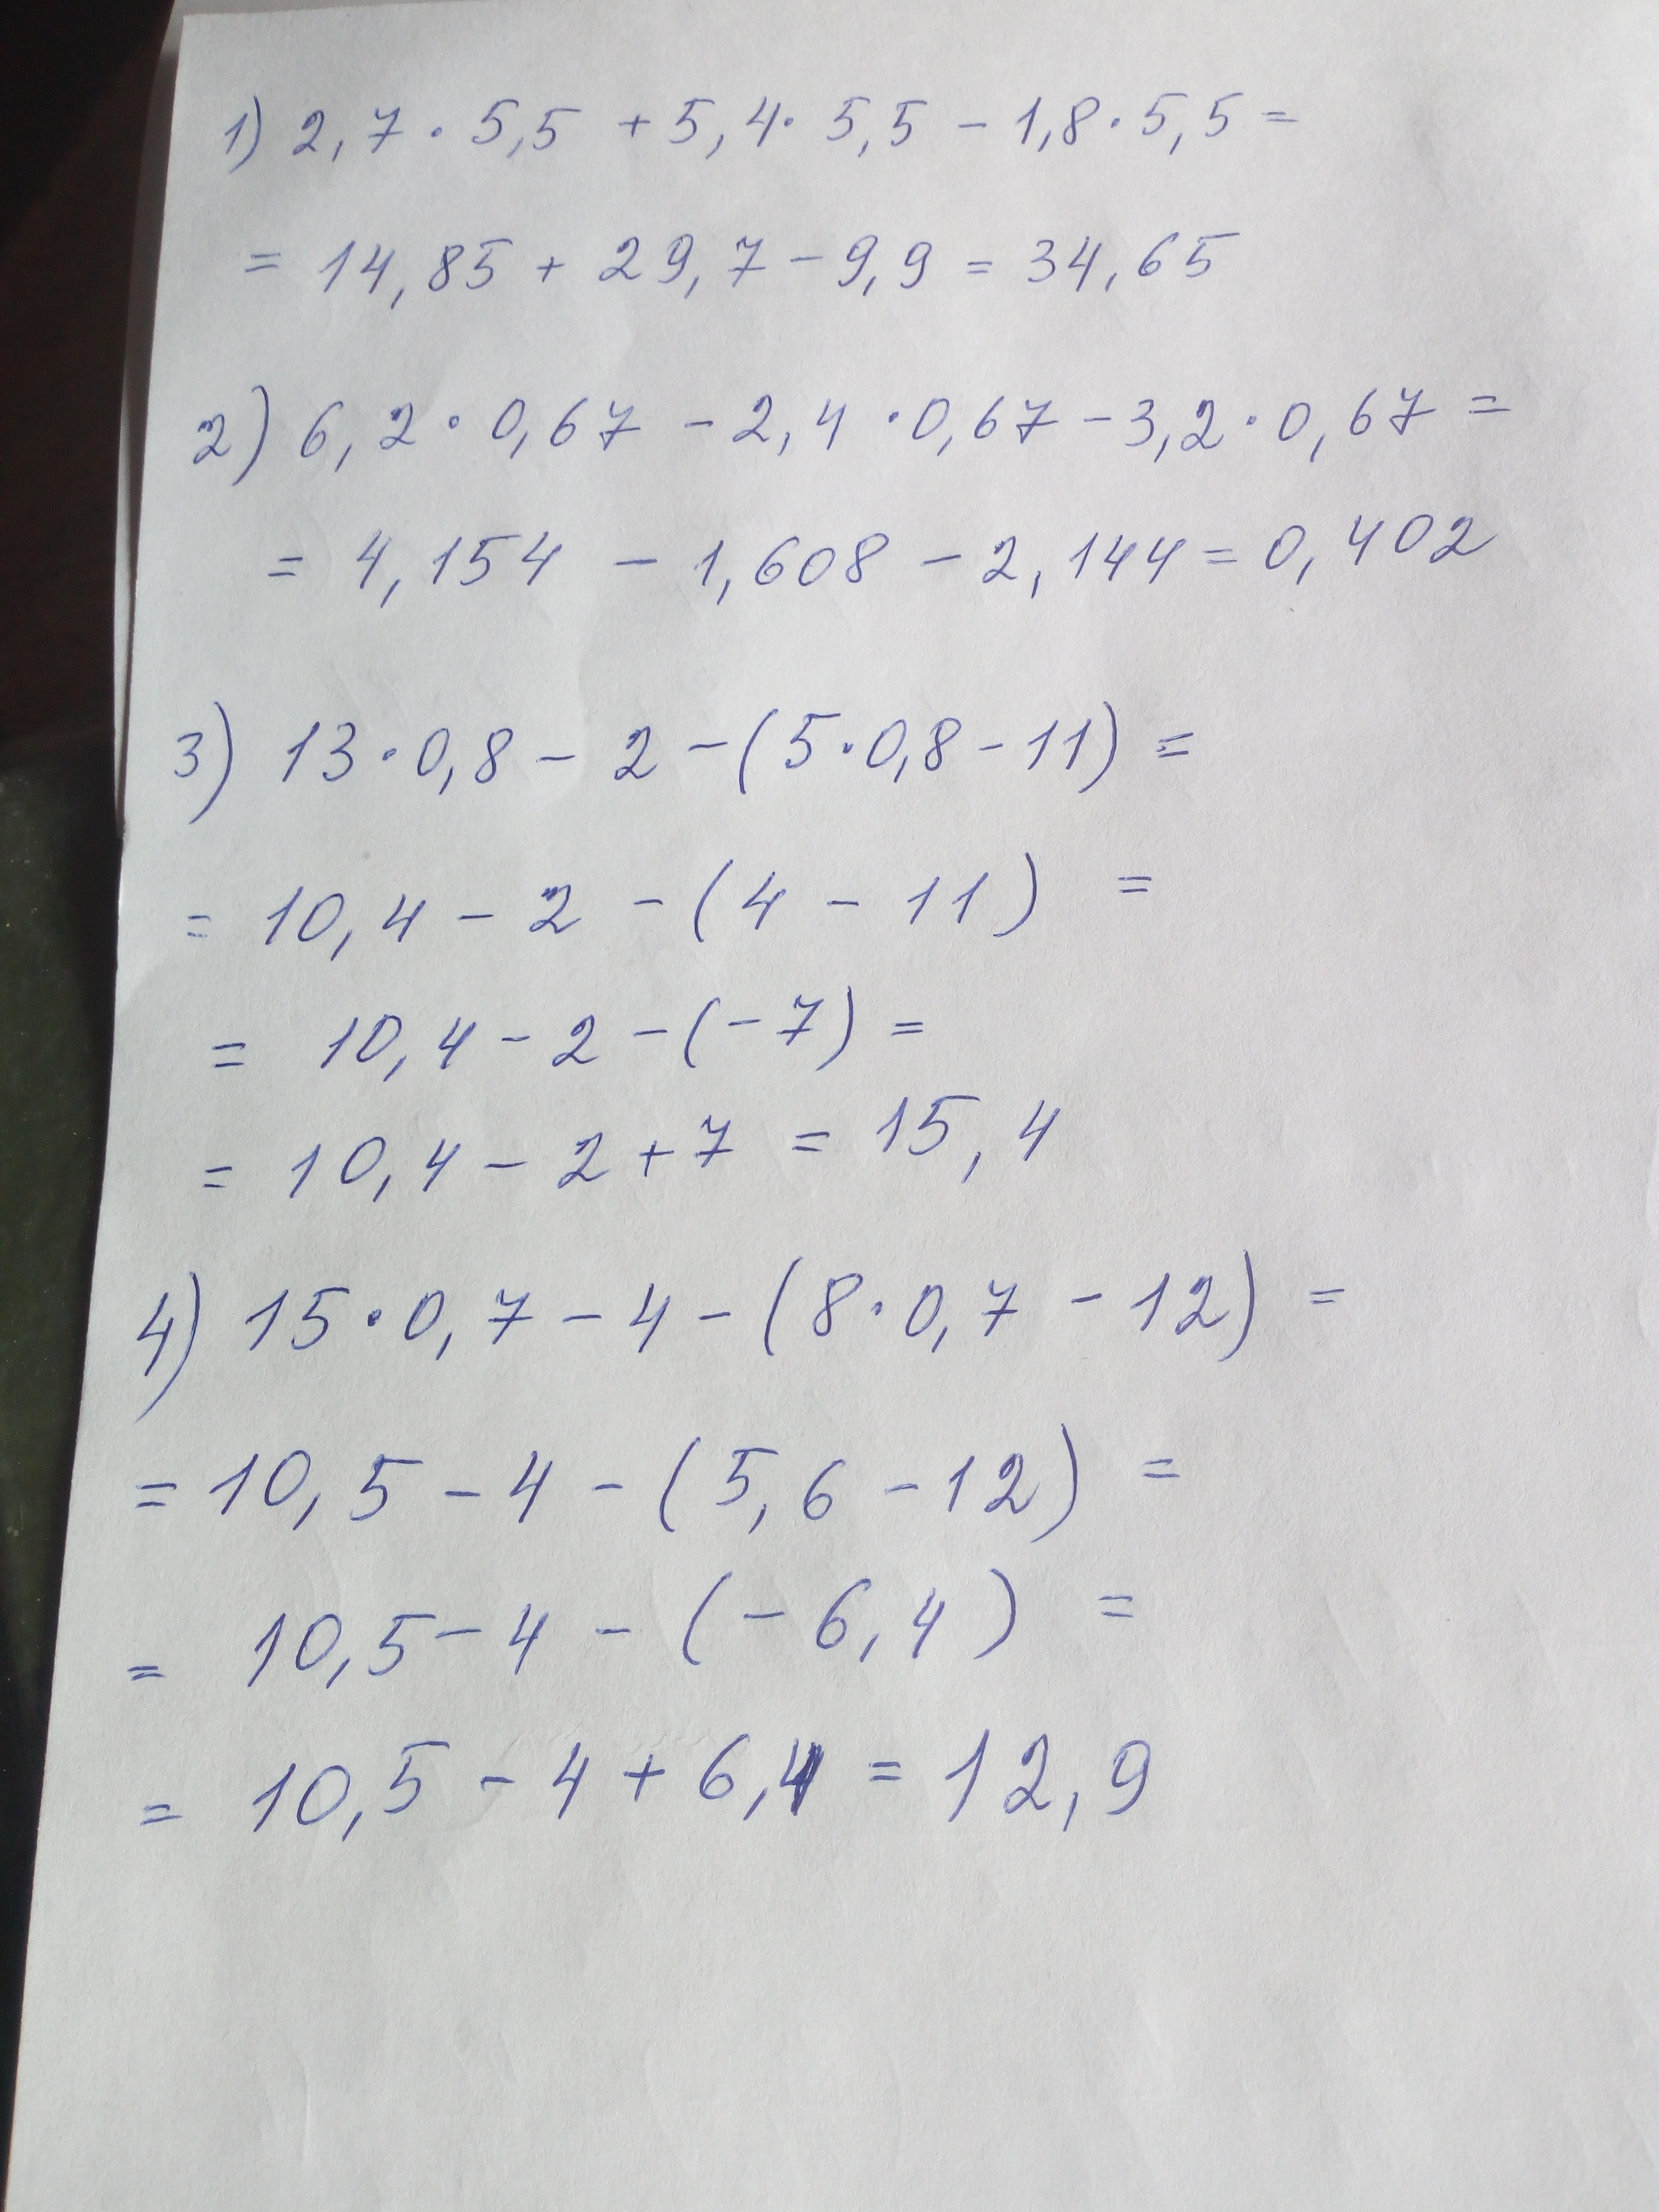 1) 2,7 · 5,5 + 5,4 · 5,5 - 1,8 · 5,5 =
= 14,85 + 29,7 - 9,9 = 34,65
2) 6,2 · 0,67 - 2,4 · 0,67 - 3,2 · 0,67 =
= 4,154 - 1,608 - 2,144 = 0,402
3) 13 · 0,8 - 2 - (5 · 0,8 - 11) =
= 10,4 - 2 - (4 - 11) =
= 10,4 - 2 - (-7) =
= 10,4 - 2 + 7 = 15,4
4) 15 · 0,7 - 4 - (8 · 0,7 - 12) =
= 10,5 - 4 - (5,6 - 12) =
= 10,5 - 4 - (-6,4) =
= 10,5 - 4 + 6,4 = 12,9